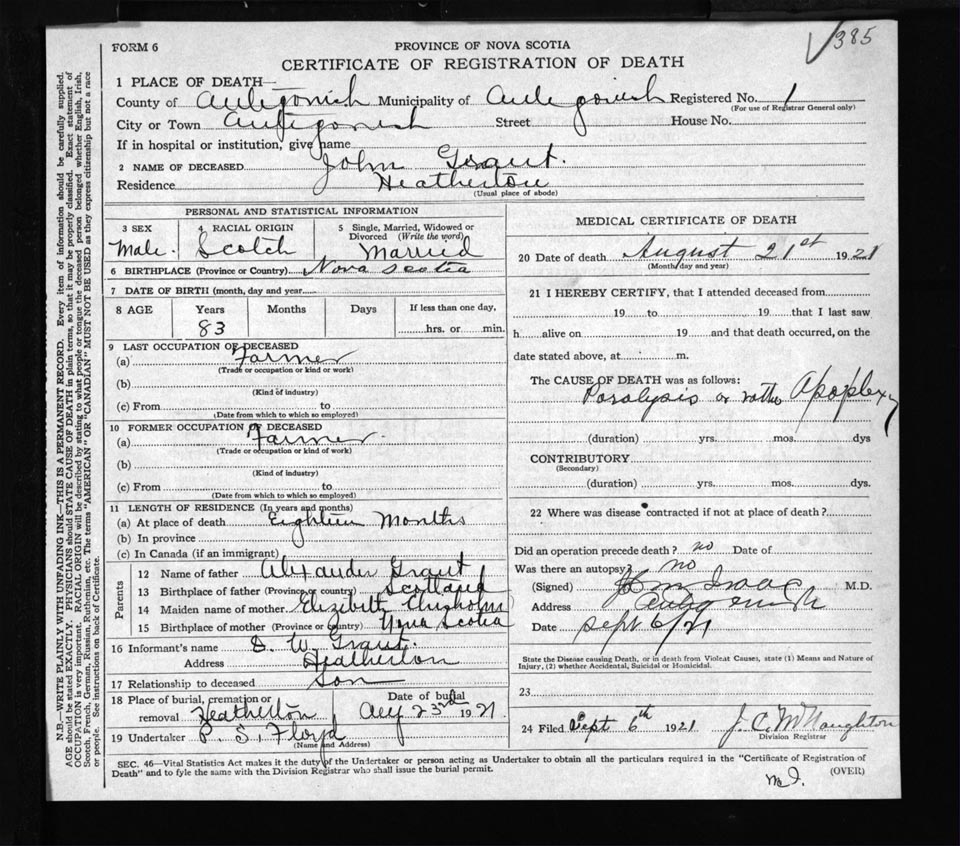 385
FORM 6
PROVINCE OF NOVA SCOTIA
CERTIFICATE OF REGISTRATION OF DEATH
1 PLACE OF DEATH—
County of Antigonish Municipality of Antigonish Registered No. 1
(For use of Registrar General only)
City or Town Antigonish Street House No.
If in hospital or institution, give name
2 NAME OF DECEASED John Grant.
Residence Heatherton
(Usual place of abode)
PERSONAL AND STATISTICAL INFORMATION
3 SEX 4 RACIAL ORIGIN 5 Single, Married, Widowed or Divorced (Write the word)
Male. Scotch Married
6 BIRTHPLACE (Province or Country) Nova Scotia
7 DATE OF BIRTH (month, day and year)
8 AGE Years Months Days If less than one day,
83 hrs. or min.
9 LAST OCCUPATION OF DECEASED
(a) Farmer
(Trade or occupation or kind of work)
(b)
(Kind of industry)
(c) From to
(Date from which to which so employed)
10 FORMER OCCUPATION OF DECEASED
(a) Farmer.
(Trade or occupation or kind of work)
(b)
(Kind of industry)
(c) From to
(Date from which to which so employed)
11 LENGTH OF RESIDENCE (In years and months)
(a) At place of death Eighteen Months
(b) In province
(c) In Canada (if an immigrant)
Parents
12 Name of father Alexander Grant
13 Birthplace of father (Province or country) Scotland
14 Maiden name of mother Elizibeth Chisholm
15 Birthplace of mother (Province or Country) Nova Scotia
16 Informant's name D. W. Grant.
Address Heatherton
17 Relationship to deceased Son
18 Place of burial, cremation or removal Heatherton Date of burial Aug 23rd 1921
19 Undertaker P. S. Floyd
(Name and Address)
MEDICAL CERTIFICATE OF DEATH
20 Date of death August 21st 1921
(Month, day and year)
21 I HEREBY CERTIFY, that I attended deceased from
19 to 19 that I last saw
h alive on 19 and that death occurred, on the
date stated above, at m.
The CAUSE OF DEATH was as follows:
Paralysis or rather Apoplexy
(duration) yrs. mos. dys
CONTRIBUTORY
(Secondary)
(duration) yrs. mos. dys.
22 Where was disease contracted if not at place of death?
Did an operation precede death? no Date of
Was there an autopsy? no
(Signed) M.D.
Address Antigonish
Date Sept 6/21
State the Disease causing Death, or in death from Violent Causes, state (1) Means and Nature of
Injury, (2) whether Accidental, Suicidal or Homicidal.
23
24 Filed Sept 6th 1921 J. C. McNaughton
Division Registrar
SEC. 46—Vital Statistics Act makes it the duty of the Undertaker or person acting as Undertaker to obtain all the particulars required in the "Certificate of Registration of
Death" and to fyle the same with the Division Registrar who shall issue the burial permit.
(OVER)
N.B.—WRITE PLAINLY WITH UNFADING INK—THIS IS A PERMANENT RECORD. Every item of information should be carefully supplied.
AGE should be stated EXACTLY. PHYSICIANS should STATE CAUSE OF DEATH in plain terms, so that it may be properly classified. Exact statement of
OCCUPATION is very important. RACIAL ORIGIN will be described by stating to what people or tongue the deceased person belonged whether English, Irish,
Scotch, French, German, Russian, Ruthenian, etc. The terms "AMERICAN" or "CANADIAN" MUST NOT BE USED as they express citizenship but not a race
or people. See instructions on back of Certificate.